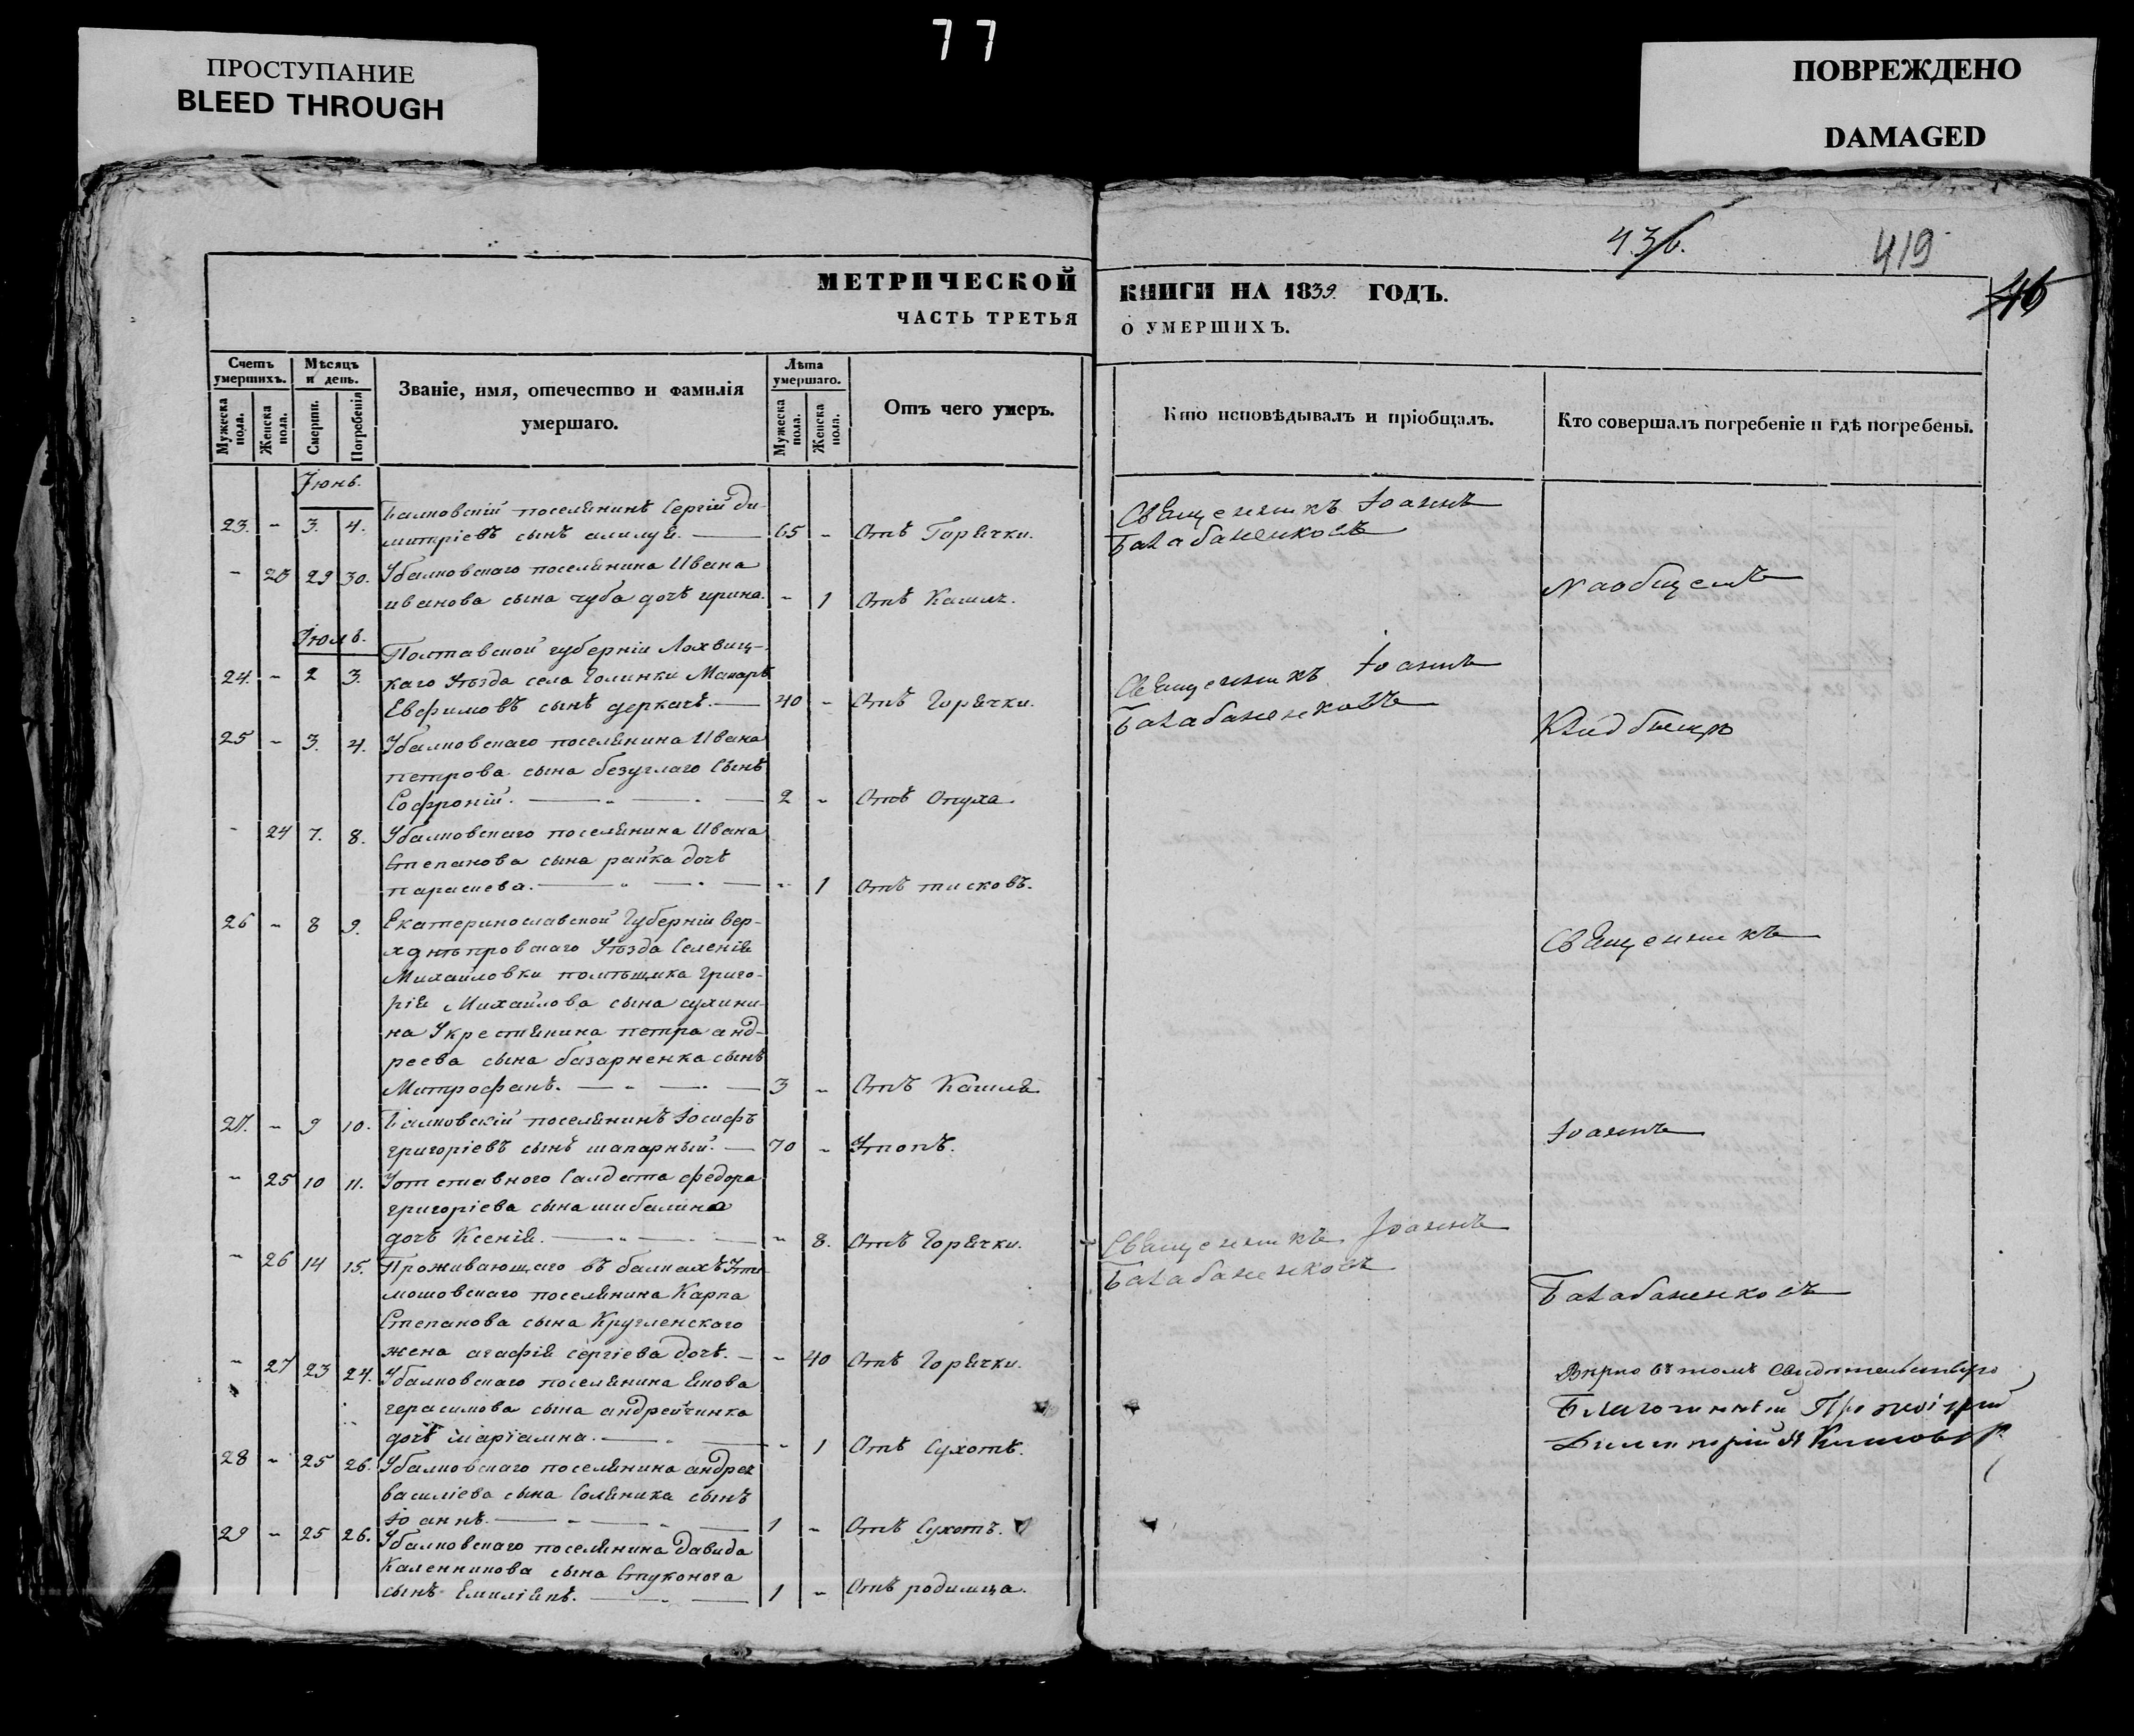 77
ПРОСТУПАНИЕ
BLEED THROUGH
ПОВРЕЖДЕНО
DAMAGED
436.
419
46
МЕТРИЧЕСКОЙ КНИГИ НА 1839. ГОДЪ.
ЧАСТЬ ТРЕТЬЯ О УМЕРШИХЪ.
Счетъ умершихъ.
Мужеска пола.
Женска пола.
Мѣсяцъ и день.
Смерти.
Погребенія
Званіе, имя, отечество и фамилія
умершаго.
Лѣта умершаго.
Мужеска пола.
Женска пола.
Отъ чего умеръ.
Кто исповѣдывалъ и пріобщалъ.
Кто совершалъ погребеніе и гдѣ погребены.
Іюнь.
23. - 3. 4. Балковскій поселянинъ Сергій ди-
митріевъ сынъ алилуя. 65 - Отъ Горячки.
Священникъ Іоаннъ
Балабаненковъ
- 23 29 30. Убалковскаго поселянина Ивана
иванова сына чуба дочь ирина. - 1 Отъ Кашля.
На общемъ
Іюль.
24. - 2 3. Полтавской губерніи Лохвиц-
каго Уѣзда села Голинки Макаръ
Евфимовъ сынъ деркачъ. 40 - Отъ Горячки.
Священникъ Іоаннъ
Балабаненковъ
Кладбищѣ
25 - 3. 4. Убалковскаго поселянина Ивана
петрова сына безуглаго Сынъ
Софроній. 2 - Отъ Опуха.
- 24 7. 8. Убалковскаго поселянина Ивана
Степанова сына райка дочь
параскева. - 1 Отъ тисковъ.
26 - 8 9. Екатеринославской Губерніи вер-
хднѣпровскаго Уѣзда Селенія
Михайловки помѣщика Григо-
рія Михайлова сына сухини-
на Укрестянина петра анд-
реева сына базарненка сынъ
Митрофанъ. 3 - Отъ Кашля
Священникъ
27. - 9 10. Балковскій поселянинъ Іосифъ
григоріевъ сынъ шапарный. 70 - Утопъ.
Іоаннъ
- 25 10 11. Уотставного Салдата федора
григоріева сына шибалина
дочь Ксенія. - 8. Отъ Горячки.
Священникъ Іоаннъ
Балабаненковъ
- 26 14 15. Проживающаго въ балкахъ
мошовскаго поселянина Карпа
Степанова сына Кругленскаго
жена агафія сергіева дочь. - 40 Отъ Горячки.
Балабаненковъ
- 27 23 24. Убалковскаго поселянина Якова
герасимова сына андрейчинка
дочь маріамна. - 1 Отъ Сухотъ.
Вѣрно въ томъ Свидѣтельствую
Благочинный Протоіерей
28 - 25 26. Убалковскаго поселянина андрея
василіева сына Соляника сынъ
Іоаннъ. 1 - Отъ Сухотъ.
29 - 25 26. Убалковскаго поселянина давида
Каленникова сына Стуконога
сынъ Емиліянъ. 1 - Отъ родимца.